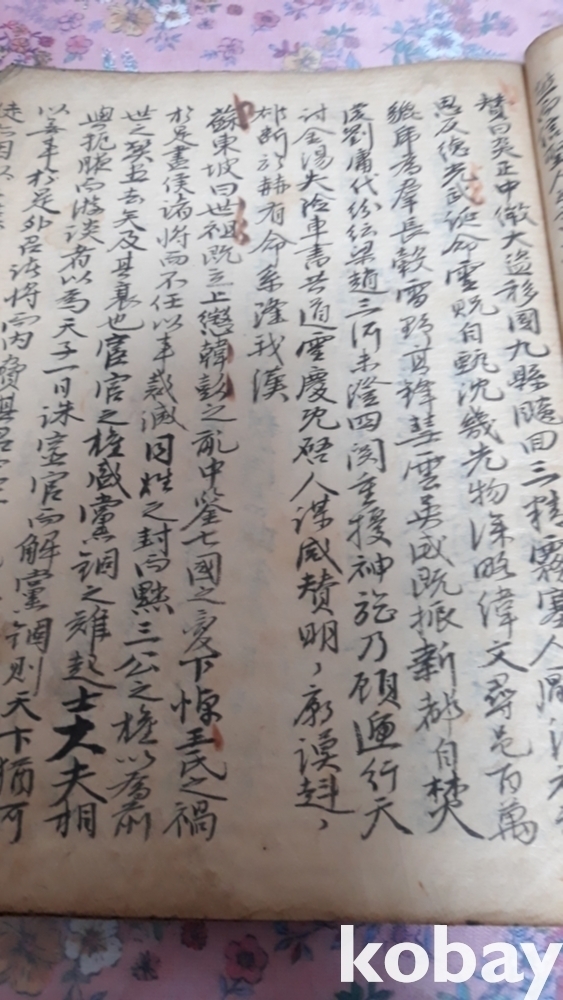 贊曰炎正中微大盜移國九縣飈回三精霧塞人厭淫
思反德光武誕命靈貺自甄沈幾先物深略緯文尋邑百萬
貔虎為羣長轂雷野高鋒彗雲英威既振新都自焚
虔劉庸代紛紜梁趙三河未澄四関重擾神旌乃顧遞行天
討金湯失險車書共道靈慶既啓人謀咸贊明〻廟謨赳〻
雄断於赫有命系隆我漢
蘇東坡曰世祖既立上懲韓彭之亂中鉴七國之変下悼王氏之禍
於是盡侯諸將而不任以事裁減同姓之封而黜三公之權以為前
世之弊去矣及其衰也宦官之權盛黨錮之難起士大夫相
與扼腕而游談者以為天子一日誅宦官而解黨錮則天下猶可
以無事於是外召諸將而內
kobay